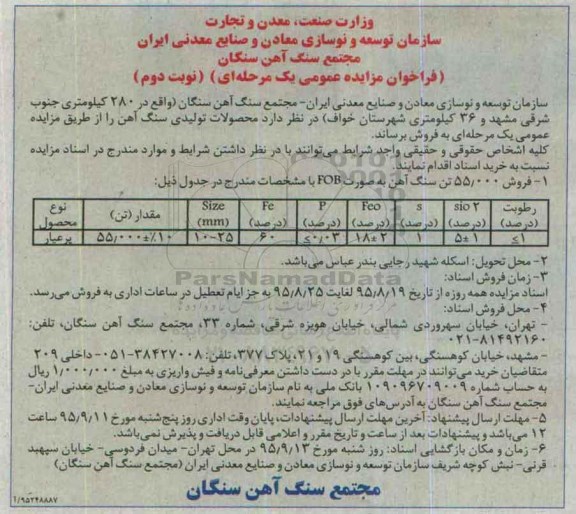 وزارت صنعت، معدن و تجارت
سازمان توسعه و نوسازی معادن و صنایع معدنی ایران
مجتمع سنگ آهن سنگان
(فراخوان مزایده عمومی یک مرحله‌ای) (نوبت دوم)
سازمان توسعه و نوسازی معادن و صنایع معدنی ایران- مجتمع سنگ آهن سنگان (واقع در ۲۸۰ کیلومتری جنوب
شرقی مشهد و ۳۶ کیلومتری شهرستان خواف) در نظر دارد محصولات تولیدی سنگ آهن را از طریق مزایده
عمومی یک مرحله‌ای به فروش برساند.
کلیه اشخاص حقوقی و حقیقی واجد شرایط می‌توانند با در نظر داشتن شرایط و موارد مندرج در اسناد مزایده
نسبت به خرید اسناد اقدام نمایند.
۱- فروش ۵۵٫۰۰۰ تن سنگ آهن به صورت FOB با مشخصات مندرج در جدول ذیل:
نوع محصول مقدار (تن) Size (mm) Fe (درصد) P (درصد) Feo (درصد) s (درصد) sio ۲ (درصد) رطوبت (درصد)
پرعیار ۵۵٫۰۰۰±٪۱۰ ۱۰-۲۵ ۶۰ ≤۰/۰۳ ۱۸±۲ ۱ ۵±۱ ≤۱
۲- محل تحویل: اسکله شهید رجایی بندر عباس می‌باشد.
۳- زمان فروش اسناد:
اسناد مزایده همه روزه از تاریخ ۹۵/۸/۱۹ لغایت ۹۵/۸/۲۵ به جز ایام تعطیل در ساعات اداری به فروش می‌رسد.
۴- محل فروش اسناد:
- تهران، خیابان سهروردی شمالی، خیابان هویزه شرقی، شماره ۳۳، مجتمع سنگ آهن سنگان، تلفن:
۰۲۱-۸۱۴۹۲۱۶۰
- مشهد، خیابان کوهسنگی، بین کوهسنگی ۱۹ و ۲۱، پلاک ۳۷۷، تلفن: ۰۵۱-۳۸۴۲۷۰۰۸ داخلی ۲۰۹
متقاضیان خرید می‌توانند در مهلت مقرر با در دست داشتن معرفی‌نامه و فیش واریزی به مبلغ ۱٫۰۰۰٫۰۰۰ ریال
به حساب شماره ۰۱۰۹۰۹۶۷۰۹۰۰۹ بانک ملی به نام سازمان توسعه و نوسازی معادن و صنایع معدنی ایران-
مجتمع سنگ آهن سنگان به آدرس‌های فوق مراجعه نمایند.
۵- مهلت ارسال پیشنهاد: آخرین مهلت ارسال پیشنهادات، پایان وقت اداری روز پنج‌شنبه مورخ ۹۵/۹/۱۱ ساعت
۱۲ می‌باشد و پیشنهادات بعد از ساعت و تاریخ مقرر و اعلامی قابل دریافت و پذیرش نمی‌باشد.
۶- زمان و مکان بازگشایی اسناد: روز شنبه مورخ ۹۵/۹/۱۳ در محل تهران- میدان فردوسی- خیابان سپهبد
قرنی- نبش کوچه شریف سازمان توسعه و نوسازی معادن و صنایع معدنی ایران (مجتمع سنگ آهن سنگان)
مجتمع سنگ آهن سنگان
ParsNamadData